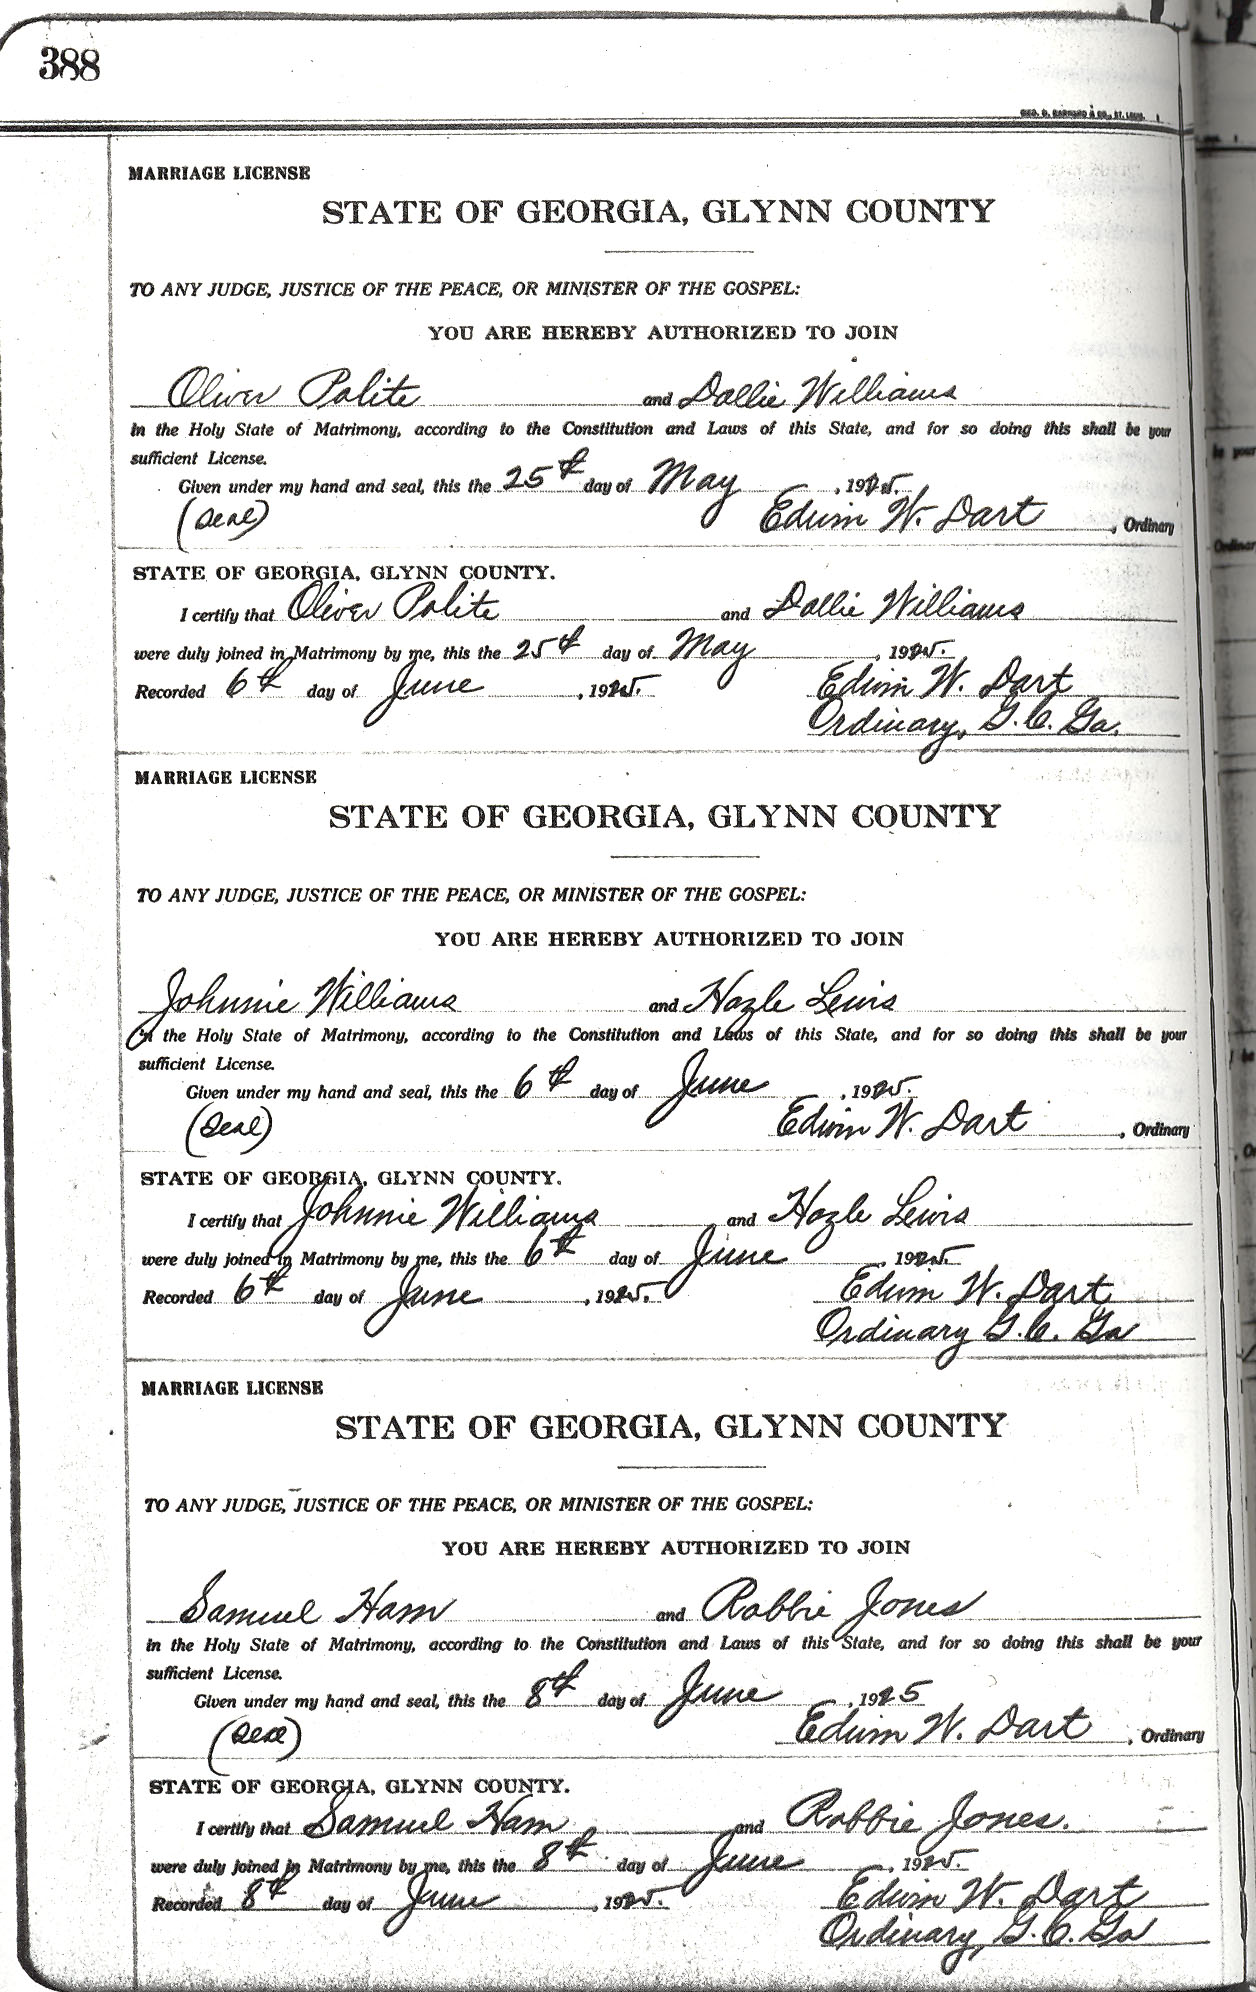 388
GEO. D. BARNARD & CO., ST. LOUIS.
MARRIAGE LICENSE
STATE OF GEORGIA, GLYNN COUNTY
TO ANY JUDGE, JUSTICE OF THE PEACE, OR MINISTER OF THE GOSPEL:
YOU ARE HEREBY AUTHORIZED TO JOIN
Oliver Polite and Dollie Williams
in the Holy State of Matrimony, according to the Constitution and Laws of this State, and for so doing this shall be your
sufficient License.
Given under my hand and seal, this the 25th day of May, 1925.
(Seal) Edwin W. Dart, Ordinary
STATE OF GEORGIA, GLYNN COUNTY.
I certify that Oliver Polite and Dollie Williams
were duly joined in Matrimony by me, this the 25th day of May, 1925.
Recorded 6th day of June, 1925. Edwin W. Dart
Ordinary, G. C. Ga.
MARRIAGE LICENSE
STATE OF GEORGIA, GLYNN COUNTY
TO ANY JUDGE, JUSTICE OF THE PEACE, OR MINISTER OF THE GOSPEL:
YOU ARE HEREBY AUTHORIZED TO JOIN
Johnnie Williams and Hazle Lewis
in the Holy State of Matrimony, according to the Constitution and Laws of this State, and for so doing this shall be your
sufficient License.
Given under my hand and seal, this the 6th day of June, 1925.
(Seal) Edwin W. Dart, Ordinary
STATE OF GEORGIA, GLYNN COUNTY.
I certify that Johnnie Williams and Hazle Lewis
were duly joined in Matrimony by me, this the 6th day of June, 1925.
Recorded 6th day of June, 1925. Edwin W. Dart
Ordinary G. C. Ga
MARRIAGE LICENSE
STATE OF GEORGIA, GLYNN COUNTY
TO ANY JUDGE, JUSTICE OF THE PEACE, OR MINISTER OF THE GOSPEL:
YOU ARE HEREBY AUTHORIZED TO JOIN
Samuel Ham and Robbie Jones
in the Holy State of Matrimony, according to the Constitution and Laws of this State, and for so doing this shall be your
sufficient License.
Given under my hand and seal, this the 8th day of June, 1925
(Seal) Edwin W. Dart, Ordinary
STATE OF GEORGIA, GLYNN COUNTY.
I certify that Samuel Ham and Robbie Jones.
were duly joined in Matrimony by me, this the 8th day of June, 1925.
Recorded 8th day of June, 1925. Edwin W. Dart
Ordinary, G. C. Ga